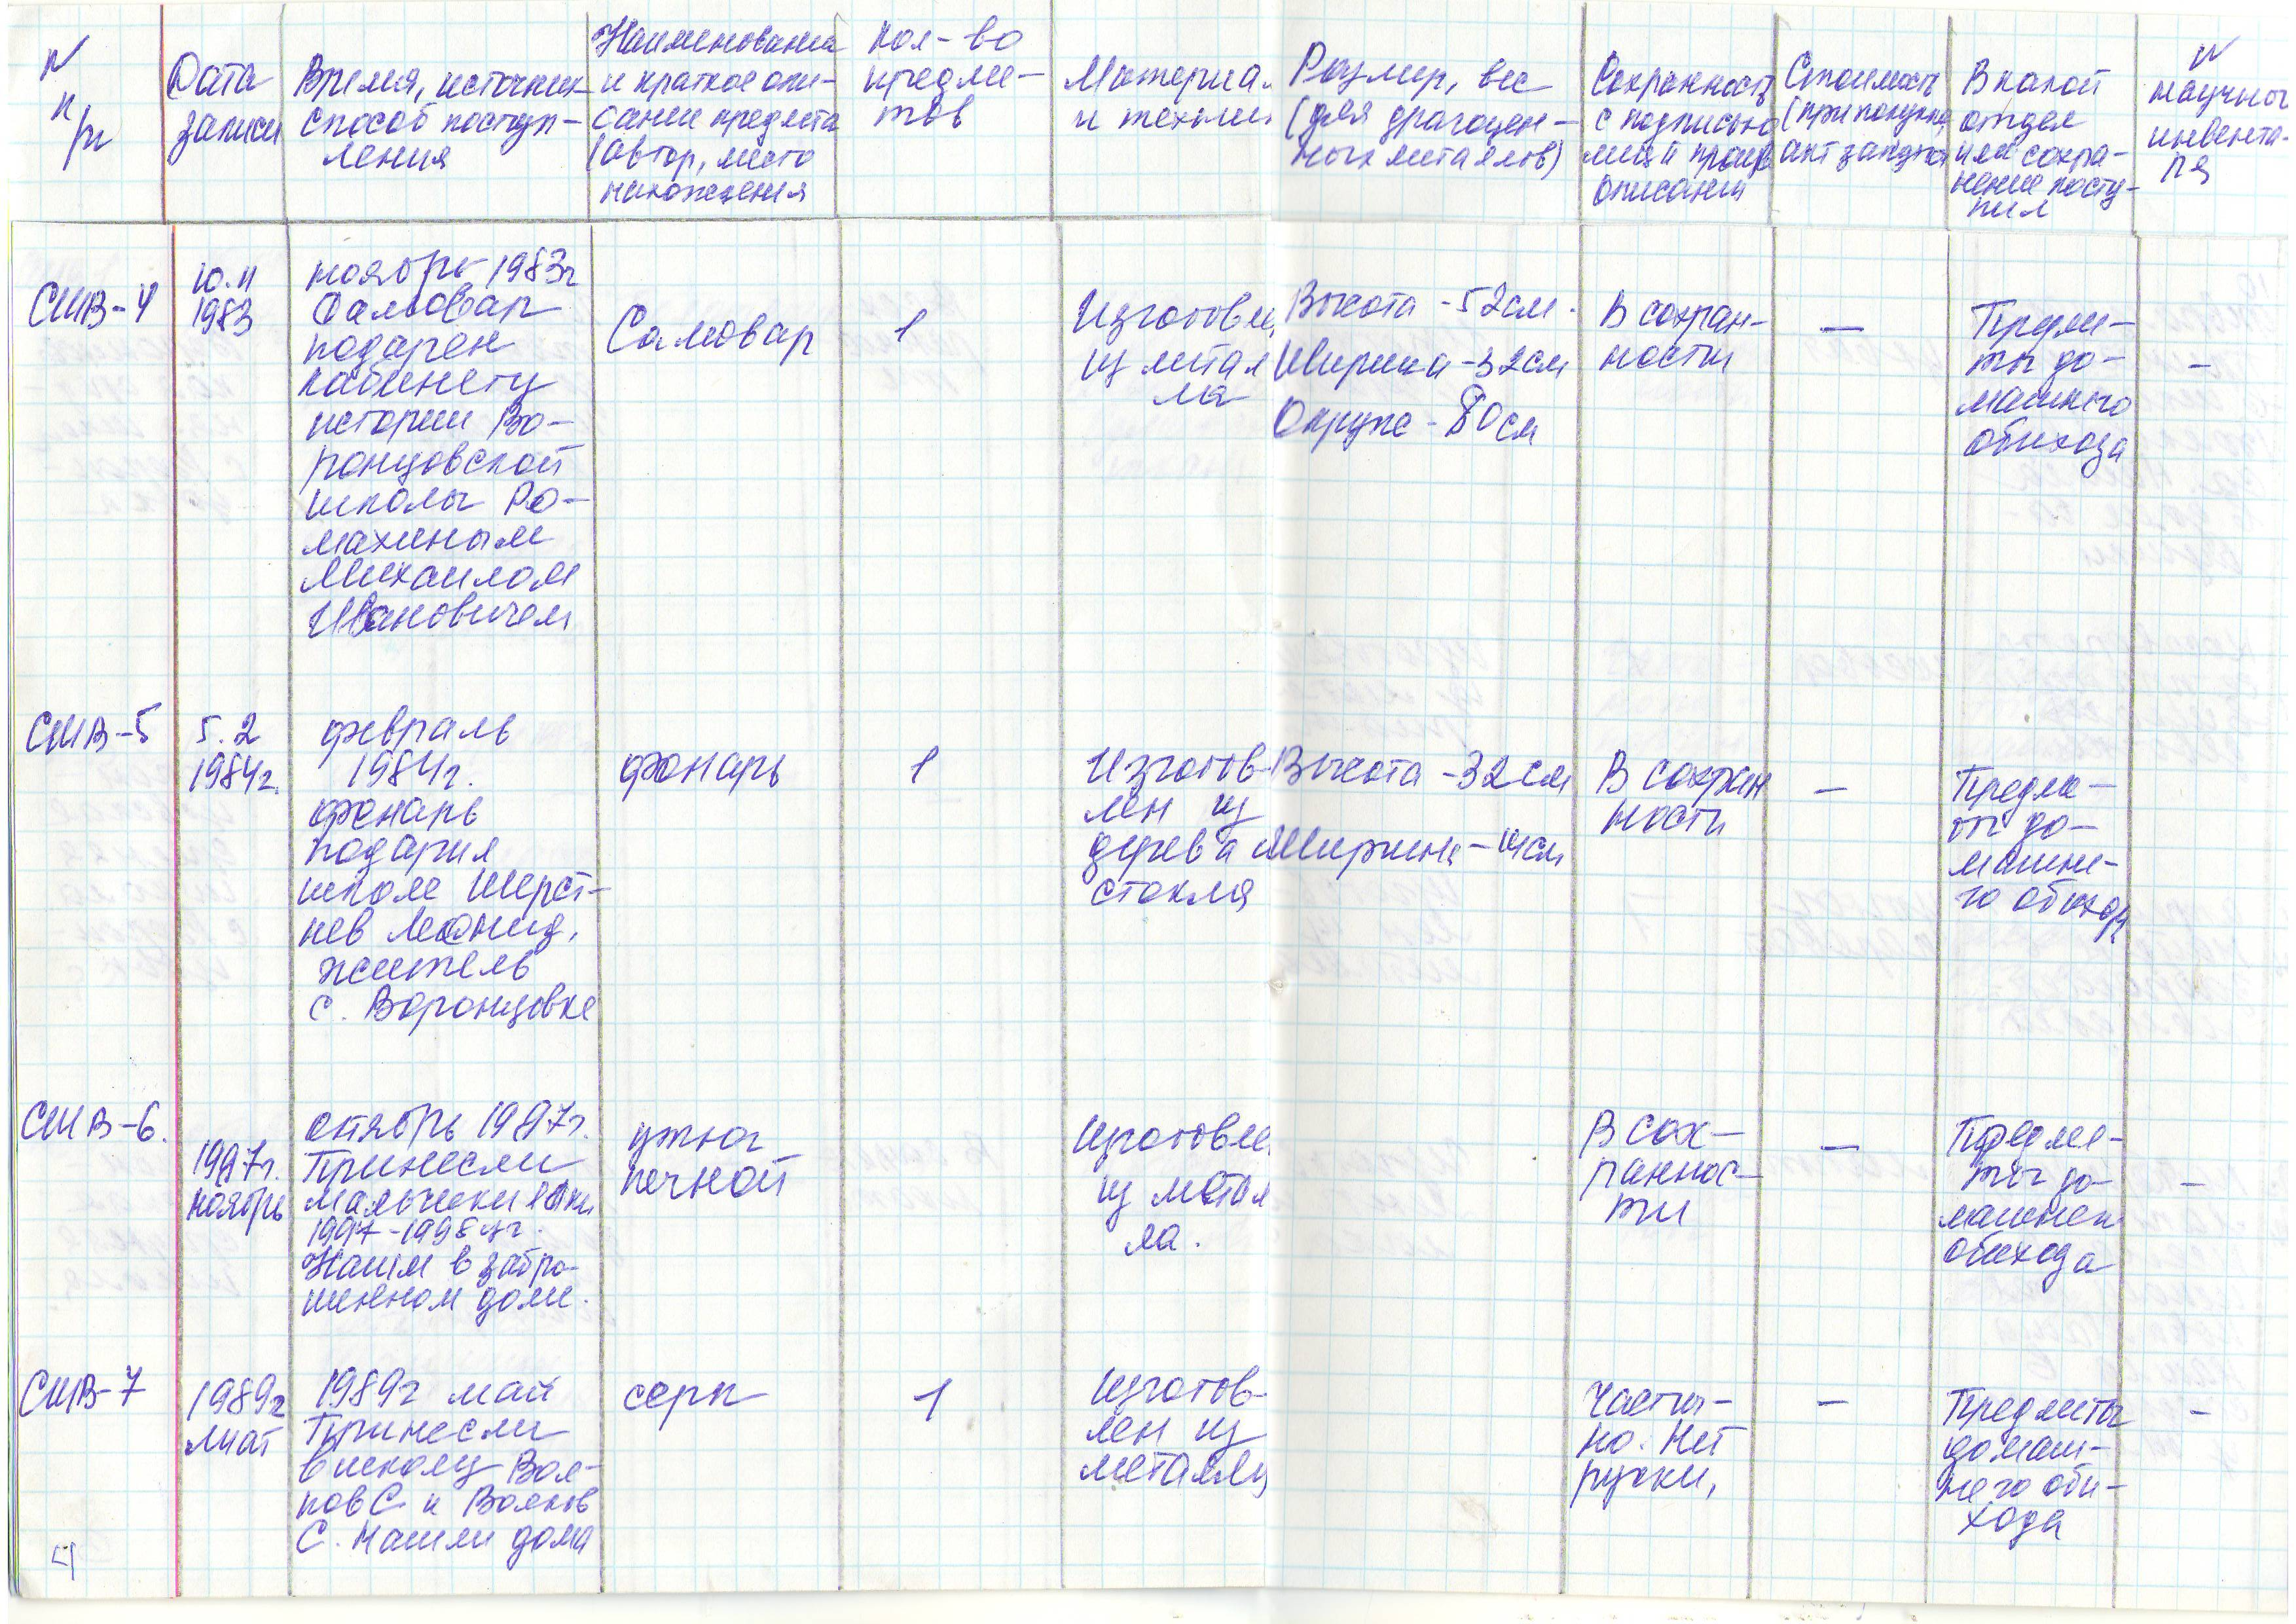 N
п/п
Дата
записи
Время, источник
способ поступ-
ления
Наименование
и краткое опи-
сание предмета
(автор, место
нахождения
кол-во
предме-
тов
Материал
и техни
Размер, вес
(для драгоцен-
ных металлов)
Сохранность
с подписью
описания
Стоимость
(при покупке,
акт закупки
В какой
отдел
или сохра-
нение посту-
пил
N
научног
инвента-
ря
СШВ-4
10.11
1983
ноябрь 1983г
Самовар
подарен
кабинету
истории Во-
ронцовской
школы Ро-
махиным
Михаилом
Ивановичем
Самовар
1
Изготовле
из метал
ла
Высота -52см.
Ширина -32см
Окруж - 80см
В сохран-
ности
—
Предме-
ты до-
машнего
обихода
-
СШВ-5
5.2
1984г.
февраль
1984г.
фонарь
подарил
школе Шерст-
нев Леонид,
житель
с. Воронцовке
фонарь
1
Изготов-
лен из
дерева и
стекла
Высота -32см
Ширина -14см
В сохран
ности
—
Предме-
ты до-
машне-
го обихода
СШВ-6.
1997г.
ноябрь
октябрь 1997г.
Принесли
мальчики
1997-1998 уг.
Нашли в забро-
шенном доме.
утюг
печной
Изготовле
из метал
ла.
В сох-
раннос-
ти
—
Предме-
ты до-
машнег
обихода
-
СШВ-7
1989г
май
1989г май
Принесли
в школу Вол-
ков С и Волков
С. Нашли дома
серп
1
Изготов-
лен из
металлу
Частич-
но. Нет
ручки,
—
Предметы
домаш-
него оби-
хода
-
4